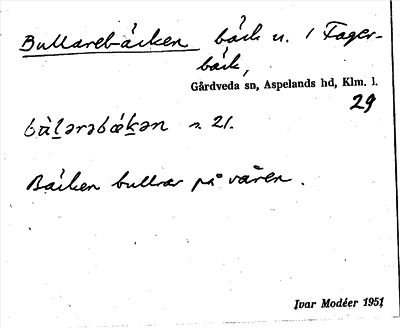 Bullarebäcken bäck u. / Fager-
bäck,
Gårdveda sn, Aspelands hd, Klm. l.
29
s. 21.
Bäcken bullrar på våren.
Ivar Modéer 1951